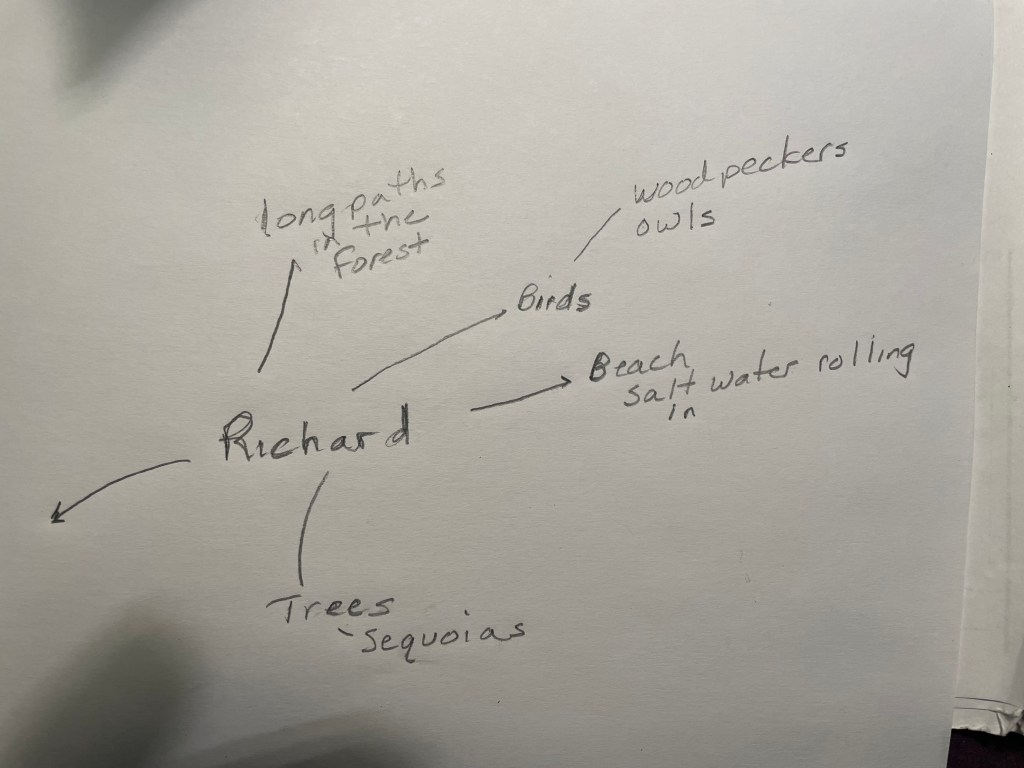 long paths
in the
forest
woodpeckers
owls
Birds
Beach
salt water rolling
in
Richard
Trees
- Sequoias